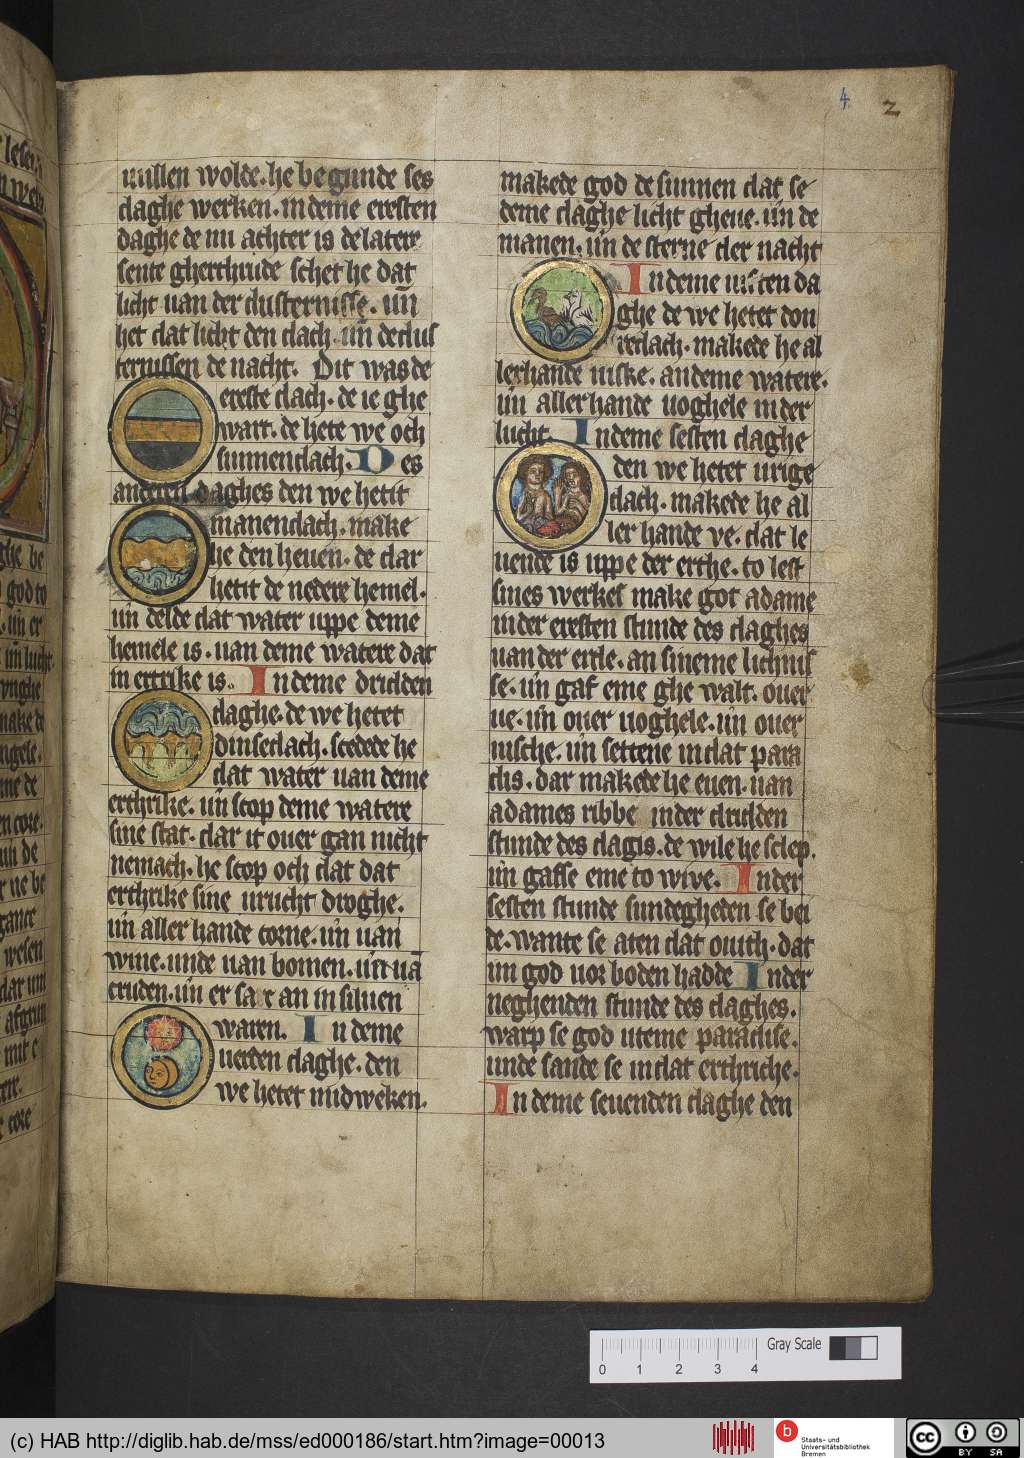 4 2
wolde. he begunde ses
daghe werken. in deme eresten
daghe de nu achter is de latere
sente gherthrude schet he dat
licht uan der dusternisse. un̄
het dat licht den dach. un̄ de dus
ternissen de nacht. Dit was de
ereste dach. de ie ghe
wart. de hete we och
sunnendach. Des
anderen daghes den we hetit
manendach. make
he den heuen. de dar
hetit de nedere hemel.
un̄ delde dat water uppe deme
hemele is. uan deme watere dat
in ertrike is. In deme dridden
daghe. de we hetet
dinsedach. scedede he
dat water uan deme
erthrike. un̄ scop deme watere
sine stat. dar it ouer gan nicht
ne mach. he scop och dat dat
erthrike sine urucht droghe.
un̄ aller hande corne. un̄ uan
wine. unde uan bomen. un̄ uā
cruden. un̄ er sa er an in siluen
waren. In deme
uerden daghe. den
we hetet midweken.
makede god de sunnen dat se
deme daghe licht gheue. un̄ de
manen. un̄ de sterne der nacht
In deme uiften da
ghe de we hetet don
redach. makede he al
lerhande uiske. an deme watere.
un̄ allerhande uoghele in der
lucht. In deme sesten daghe
den we hetet urige
dach. makede he al
ler hande ve. dat le
uende is uppe der erthe. to lest
sines werkes make got adame
in der eresten stunde des daghes
uan der erde. an sineme lichnis
se. un̄ gaf eme ghe walt. ouer
ue. un̄ ouer uoghele. un̄ ouer
uische. un̄ settene in dat para
dis. dar makede he euen. uan
adames ribbe in der dridden
stunde des dagis. de wile he sclep.
un̄ gaffe eme to wive. In der
sesten stunde sundegheden se bei
de. wante se aten dat ouith. dat
im god uor boden hadde In der
neghenden stunde des daghes.
warp se god uteme paradise.
unde sande se in dat erthriche.
In deme seuenden daghe den
0 1 2 3 4 Gray Scale
(c) HAB http://diglib.hab.de/mss/ed000186/start.htm?image=00013
b Staats- und
Universitätsbibliothek
Bremen
cc BY SA